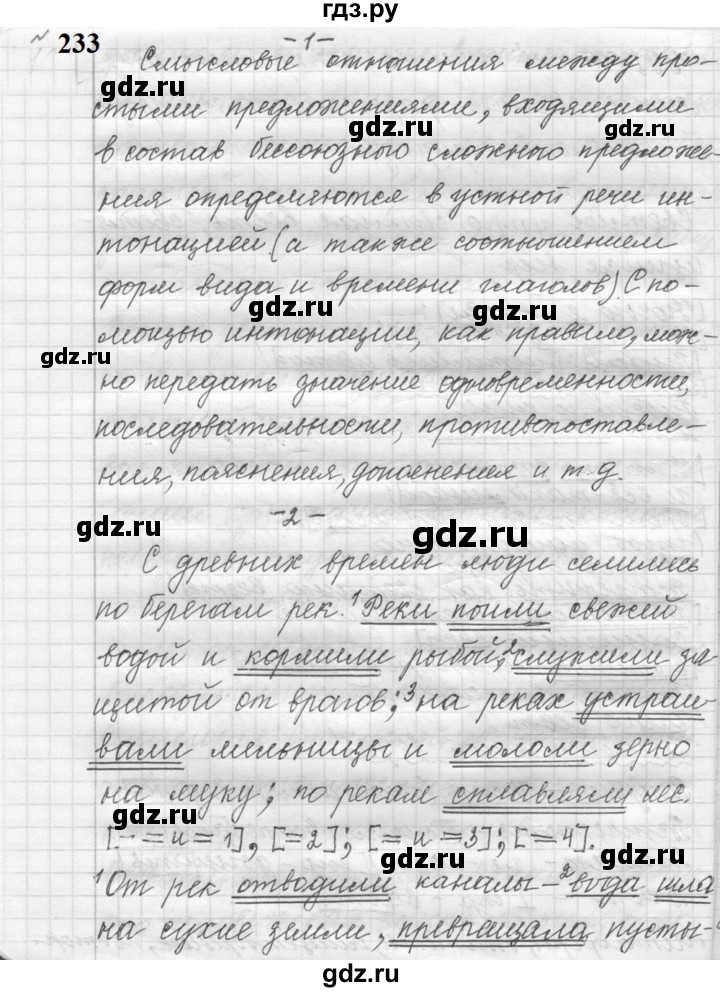 гдз.ру
233
-1-
Смысловые отношения между про-
gdz.ru
стыми предложениями, входящими
gdz.ru
gdz.ru
в состав бессоюзного сложного предложе-
ния определяются в устной речи ин-
gdz.ru
тонацией (а также соотношением
форм вида и времени глаголов). С по-
gdz.ru
gdz.ru
мощью интонации, как правило, мож-
gdz.ru
но передать значение одновременности,
последовательности, противопоставле-
ния, пояснения, дополнения и т.д.
-2-
gdz.ru
gdz.ru
С древних времён люди селились
по берегам рек. ¹Реки поили свежей
gdz.ru
водой и кормили рыбой, ²служили за-
gdz.ru
щитой от врагов; ³на реках устраи-
вали мельницы и мололи зерно
gdz.ru
на муку; по рекам сплавляли лес.
gdz.ru
[- = и = 1], [= 2]; [= и = 3]; [= 4].
¹От рек отводили каналы - ²вода шла
gdz.ru
на сухие земли, превращала пусты-
gdz.ru
гдз.ру